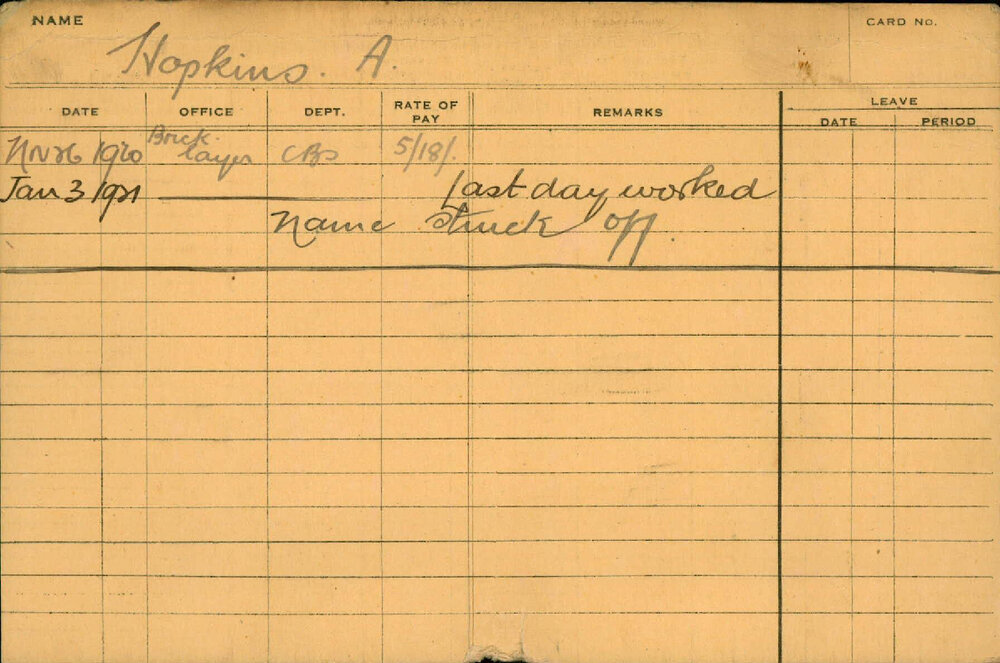 NAME
CARD NO.
Hopkins. A.
DATE OFFICE DEPT. RATE OF PAY REMARKS LEAVE
DATE PERIOD
Nov 26 1920 Brick layer CBs 5/18/.
Jan 3 1921 Last day worked
Name struck off